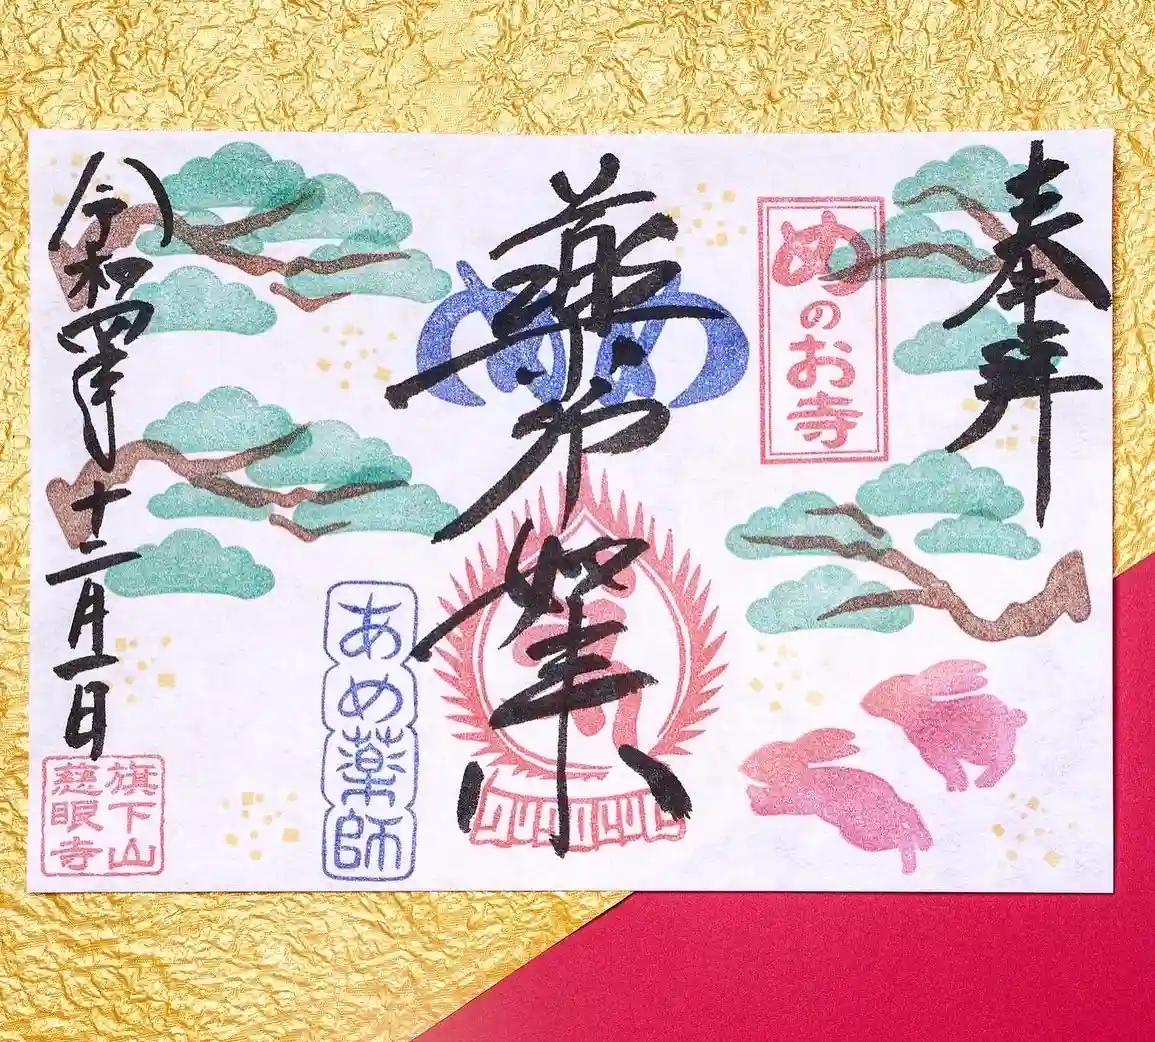 奉拝
めのお寺
薬師如来
めめ
あめ薬師
令和四年十二月一日
旗下山
慈眼寺